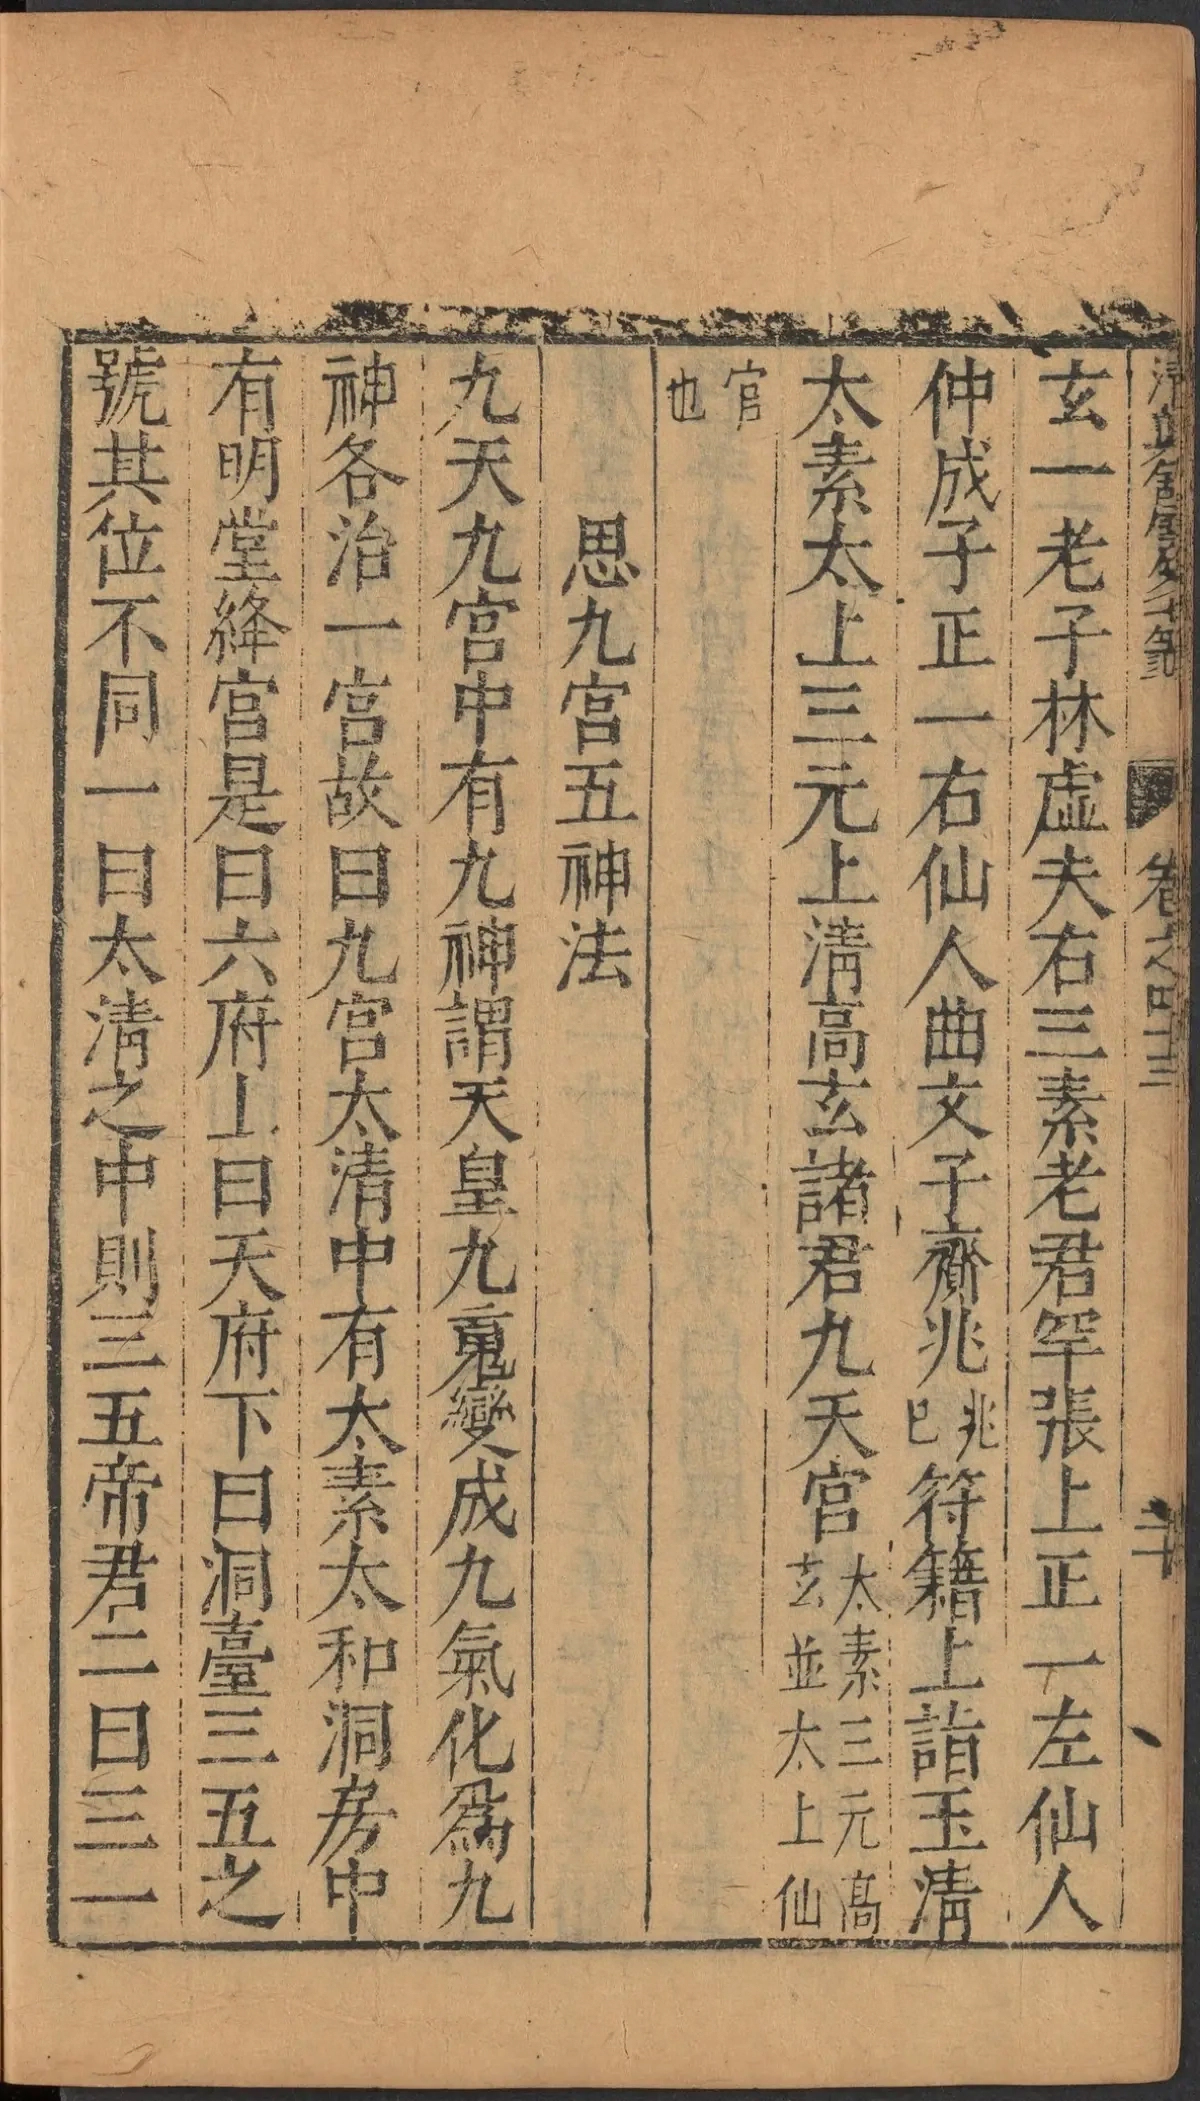 清真舘雲笈七籤 卷之四十三 二十
玄一老子林虛夫右三素老君罕張上正一左仙人
仲成子正一右仙人曲文子齎兆兆巳符籍上詣玉清
太素太上三元上清高玄諸君九天宮太素三元高玄並太上仙
官也
思九宮五神法
九天九宮中有九神謂天皇九䰟變成九氣化爲九
神各治一宮故曰九宮太清中有太素太和洞房中
有明堂絳宮是曰六府上曰天府下曰洞臺三五之
號其位不同一曰太清之中則三五帝君二曰三一